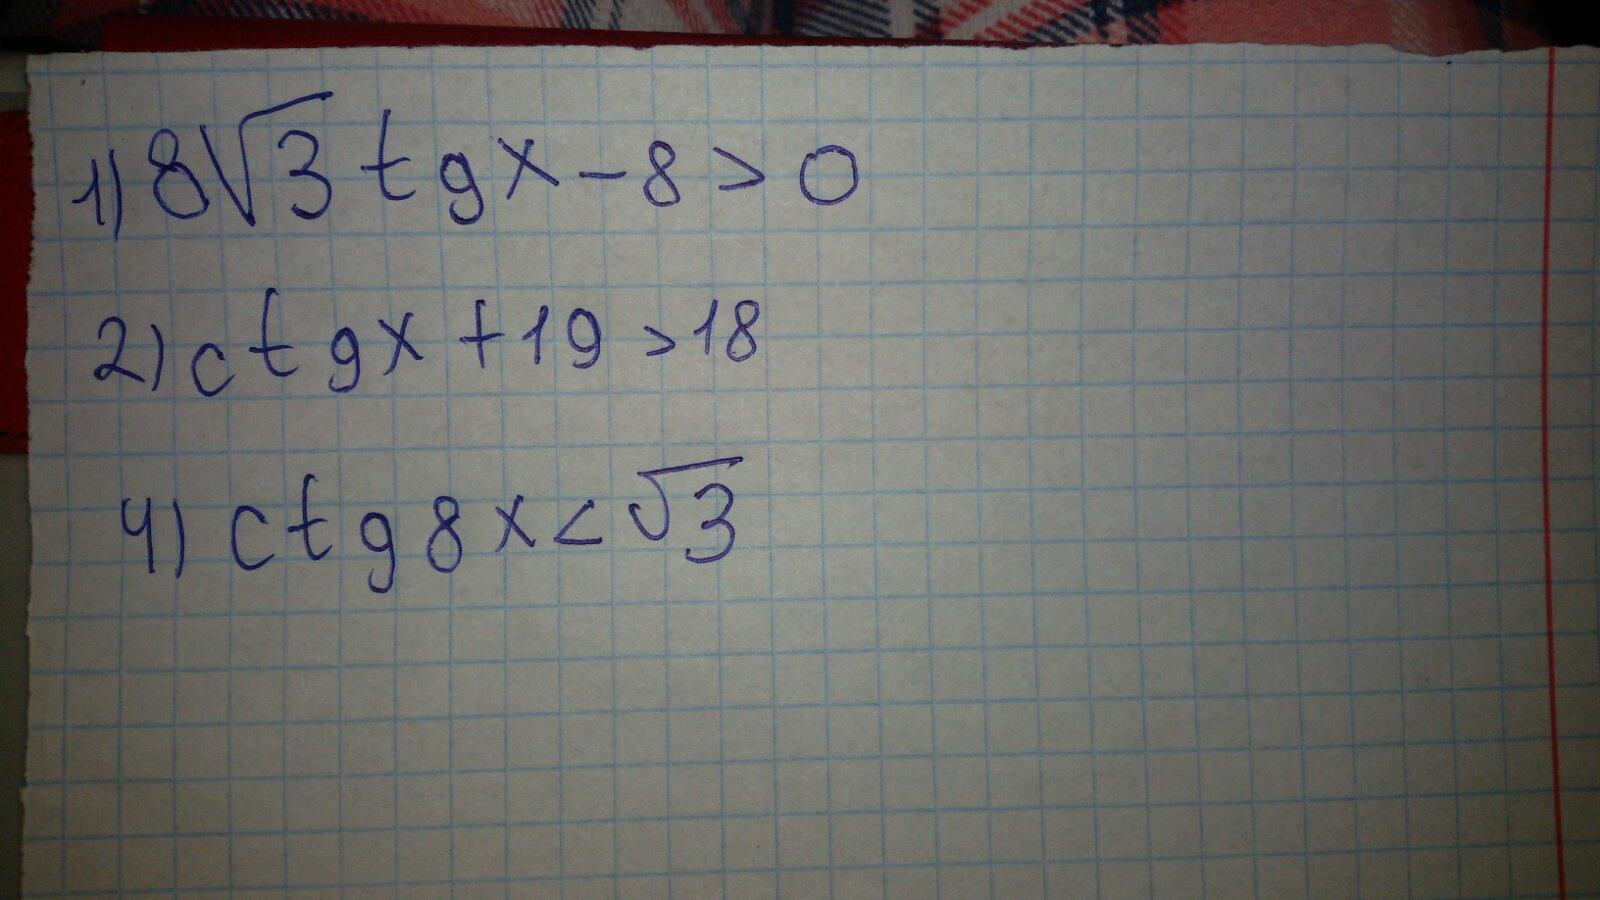 1) 8√3 tgx - 8 > 0
2) ctgx + 19 > 18
4) ctg8x < √3